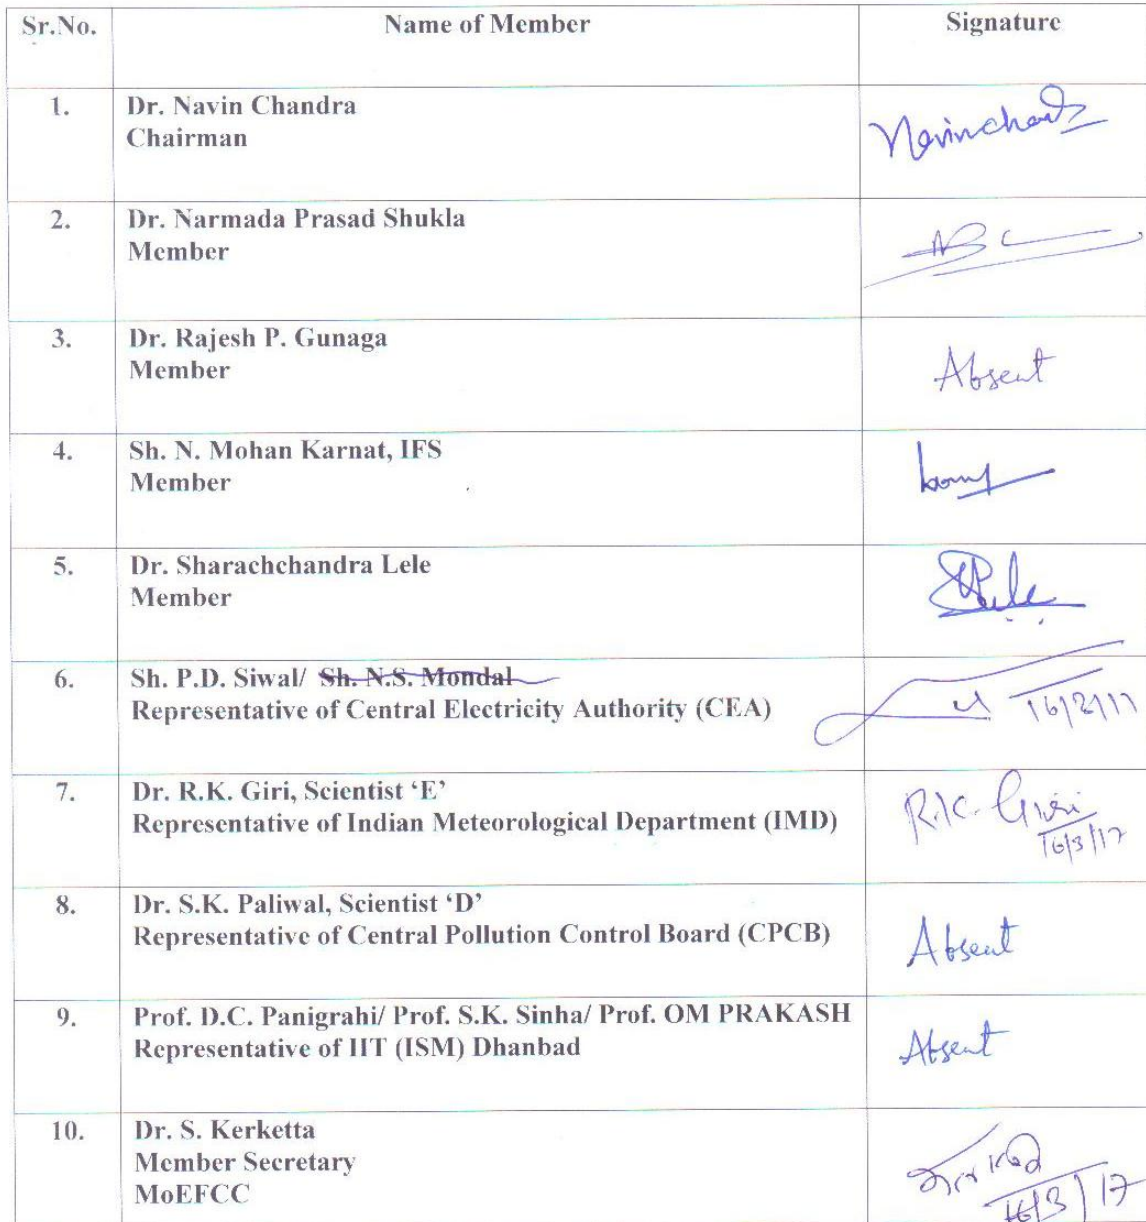 Sr.No. Name of Member Signature
1. Dr. Navin Chandra
Chairman
Navinchandra
2. Dr. Narmada Prasad Shukla
Member
3. Dr. Rajesh P. Gunaga
Member
Absent
4. Sh. N. Mohan Karnat, IFS
Member
5. Dr. Sharachchandra Lele
Member
Lele
6. Sh. P.D. Siwal/ Sh. N.S. Mondal
Representative of Central Electricity Authority (CEA)
7. Dr. R.K. Giri, Scientist ‘E’
Representative of Indian Meteorological Department (IMD)
R.K. Giri
16/3/17
8. Dr. S.K. Paliwal, Scientist ‘D’
Representative of Central Pollution Control Board (CPCB)
Absent
9. Prof. D.C. Panigrahi/ Prof. S.K. Sinha/ Prof. OM PRAKASH
Representative of IIT (ISM) Dhanbad
Absent
10. Dr. S. Kerketta
Member Secretary
MoEFCC
16/3/17